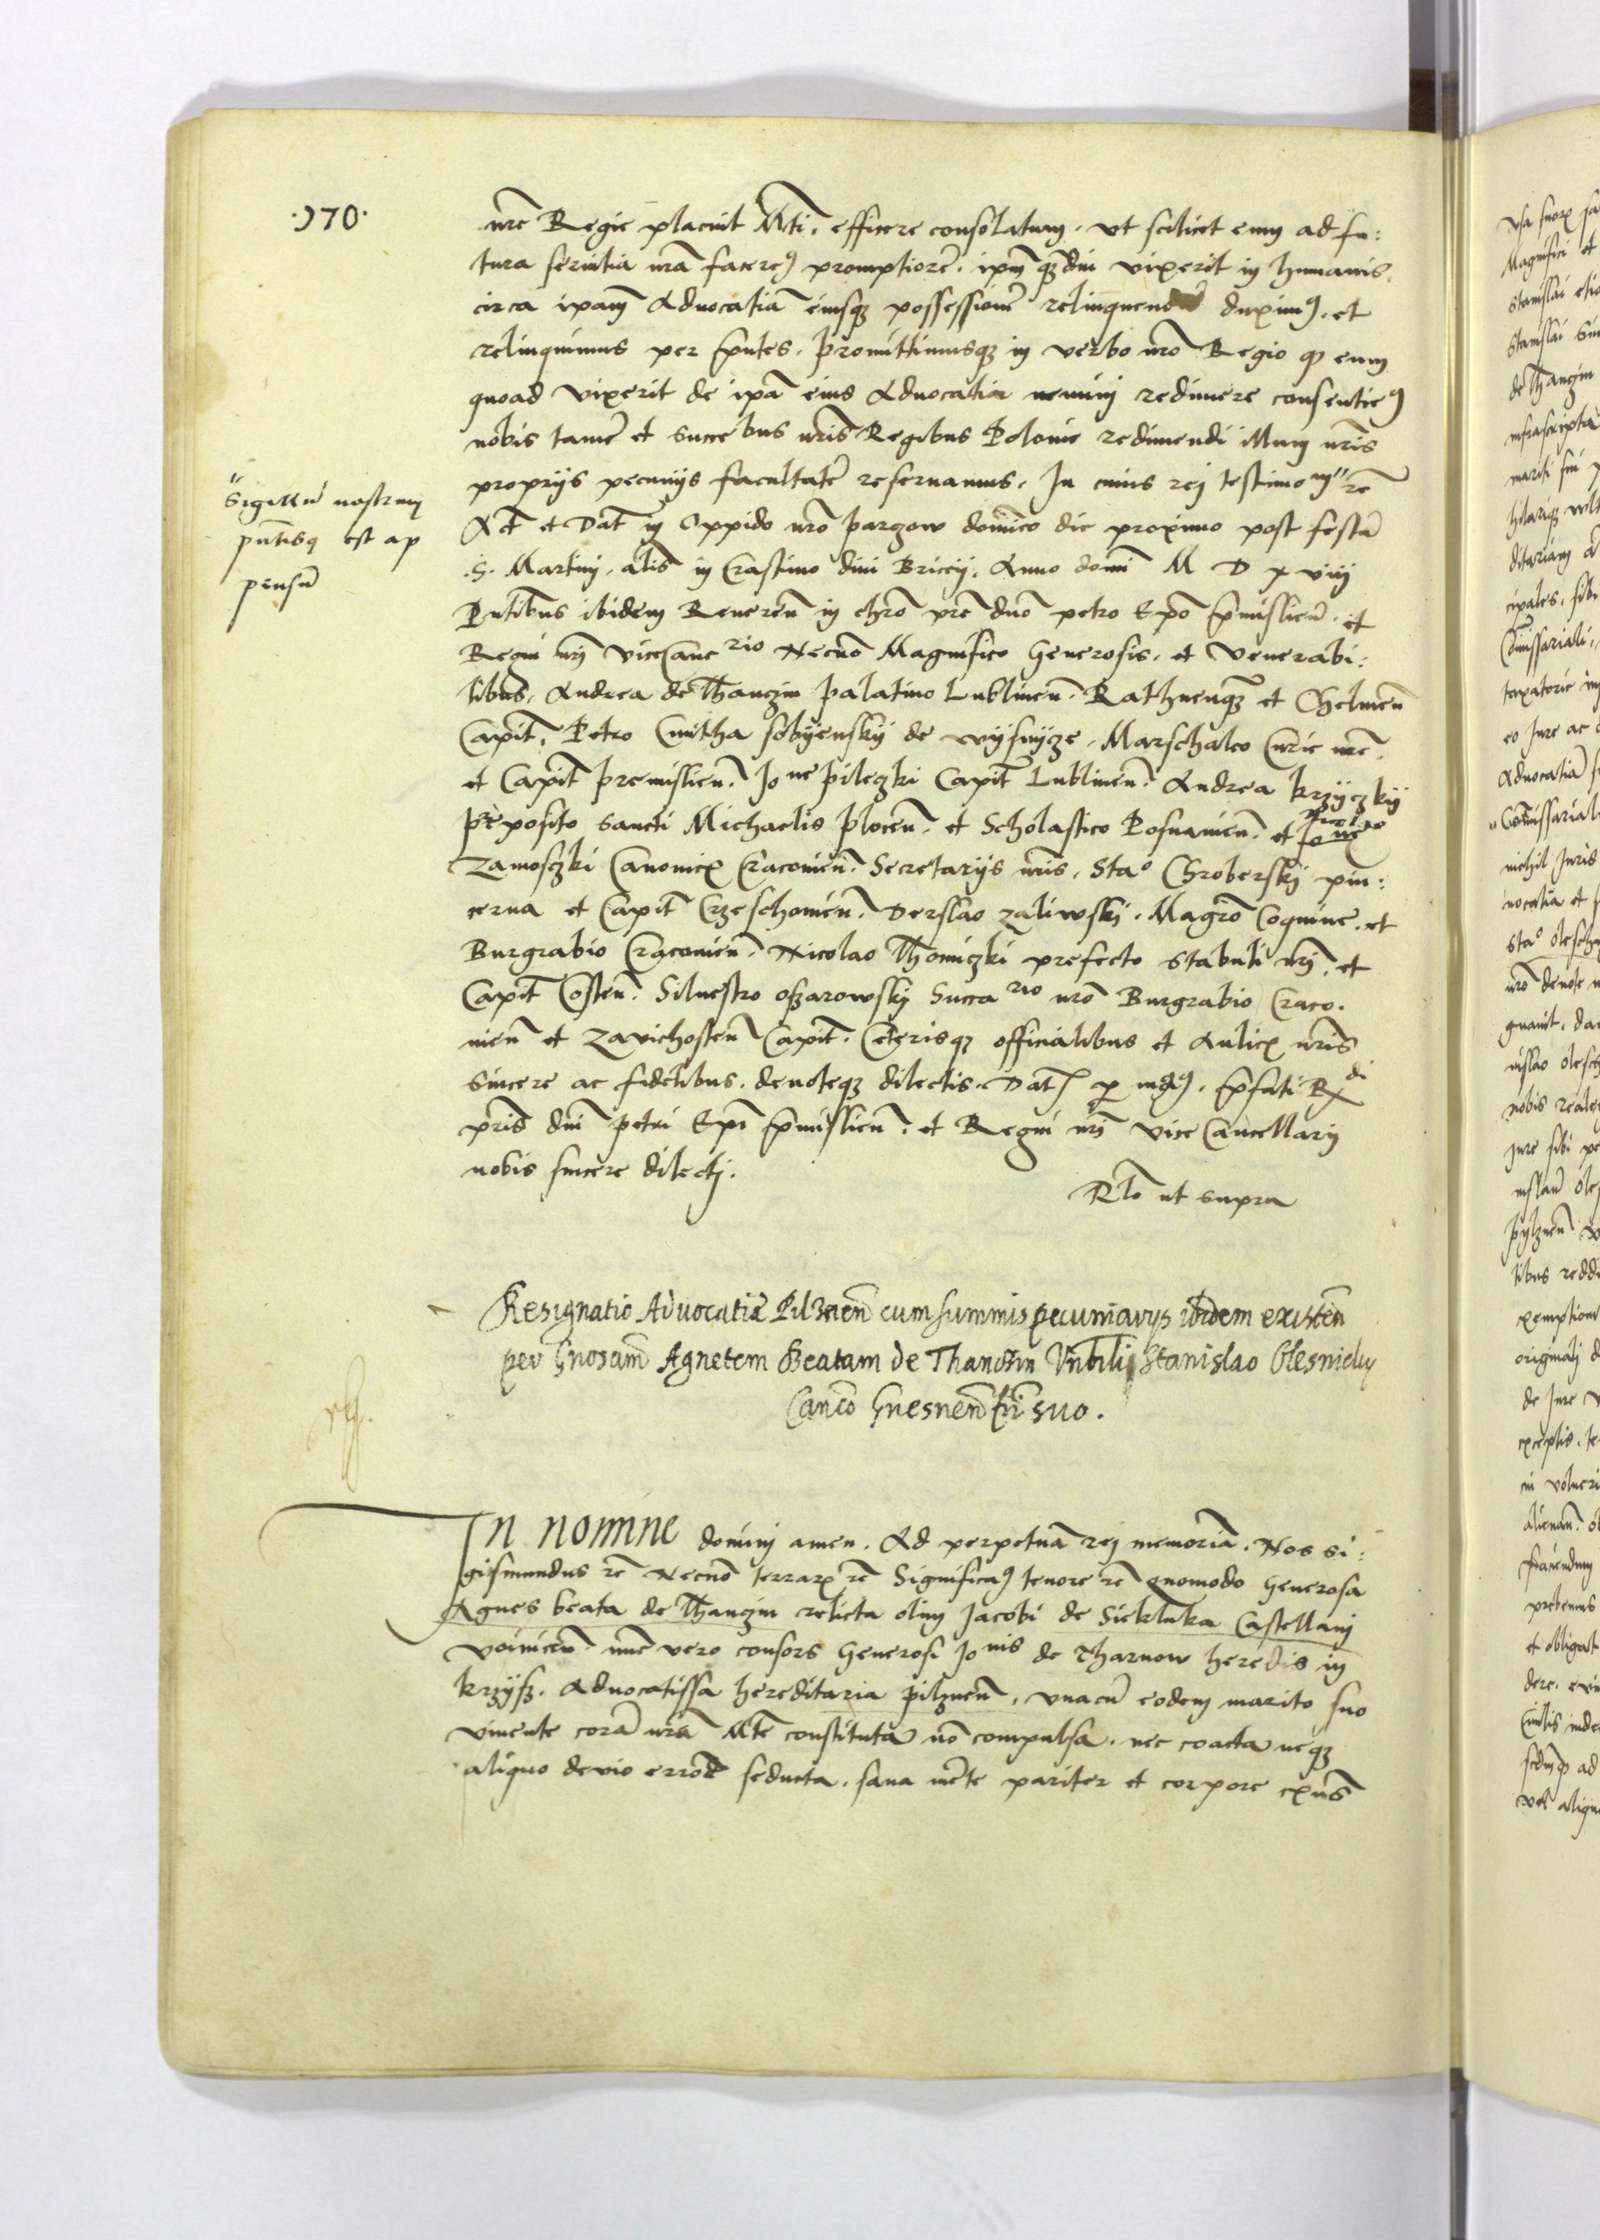 ·170·
nr̄e Regie placuit Mti. efficere consolatum. ut scilicet eum ad fu:
tura servitia nr̄a facere promptiorē. ipm̄ qz diu vixerit in humanis.
circa ipam̄ Advocatiā eiusqz possessionē relinquend duximus. et
relinquimus per p̄ntes. promittimusqz in verbo nr̄o Regio qz eum
quoad vixerit de ipā eius Advocatia nemini redimere consentie
nobis tamē et succebus nr̄is Regibus Polonie redimendi illum nr̄is
proprijs pecunijs facultatē reservamus. In cuius rej testimo m " rē
"Sigillū nostrum
pn̄tibsq est ap
pensū
Act̄ et Dat̄ in Oppido nr̄o pargow domīco die proximo post festū
.S. Martini. al̄s in Crastino divi Briccij. Anno domī M D x viij
Pn̄tibus ibidem Reveren̄ in chrō pr̄e dnō petro Ep̄o p̄misliēn. et
Regni nr̄i viceCanc rio Necnō Magnifico Generosis. et Venerabi:
libus. Andrea de Thanczin palatino Lublinen̄. Rathnenqz et Chelmen̄
Capit̄. Petro Cmitha sobyensky de wysnycze. Marschalco Curie nr̄e.
et Capit̄ premislien̄. Jo ne pileczki Capit̄ Lublinen̄. Andrea krzyczkij
p̄eposito sancti Michaelis plocen̄. et Scholastico Posnanien̄. et Jo ne
zamosczki Canonicis Cracovien̄. Secretarijs nr̄is. Stao Chroberskj pin:
cerna et Capit̄ Czeschovien̄. Derslao zaliwskj. Magrō Coquine. et
Burgrabio Cracovien̄. Nicolao Thomiczki prefecto stabuli nr̄j. et
Capit̄ Costen̄. Silvestro ozarowskj Succa rio nr̄o Burgrabio Craco.
vien̄ et zavichosten̄ Capit̄. Ceterisqz officialibus et Aulicis nr̄is
sincere ac fidelibus. devoteqz dilectis. Dat p man9. p̄fati R di
pr̄is dnī petri Ep̄i p̄mislien̄. et Regni nr̄j vice Cancellarij
nobis sincere dilectj.
Rlō ut supra
Resignatio Advocatiæ Pilznen̄ cum summis pecuniarys ibidem existen̄
per Gnosam̄ Agnetem Beatam de Thanczin Vnbili Stanislao Olesnicky
Canco Gnesnen̄ fr̄i suo.
In nomine dominj amen. Ad perpetuā rej memoriā. Nos si:
gismundus rē Necnō terrar rē Significa9 tenore rē quomodo Generosa
Agnes beata de Thanczin relicta olim Jacobi de Siekluka Castellanj
voinicen̄ nunc vero consors Generosi Jo nis de Tharnow heredis in
krzysz. Advocatissa hereditaria pilznen̄. vnacū eodem marito suo
vivente corā nr̄a Mte constituta nō compulsa. nec coacta neqz
aliquo devio errore seducta. sana mēte pariter et corpore exn̄s